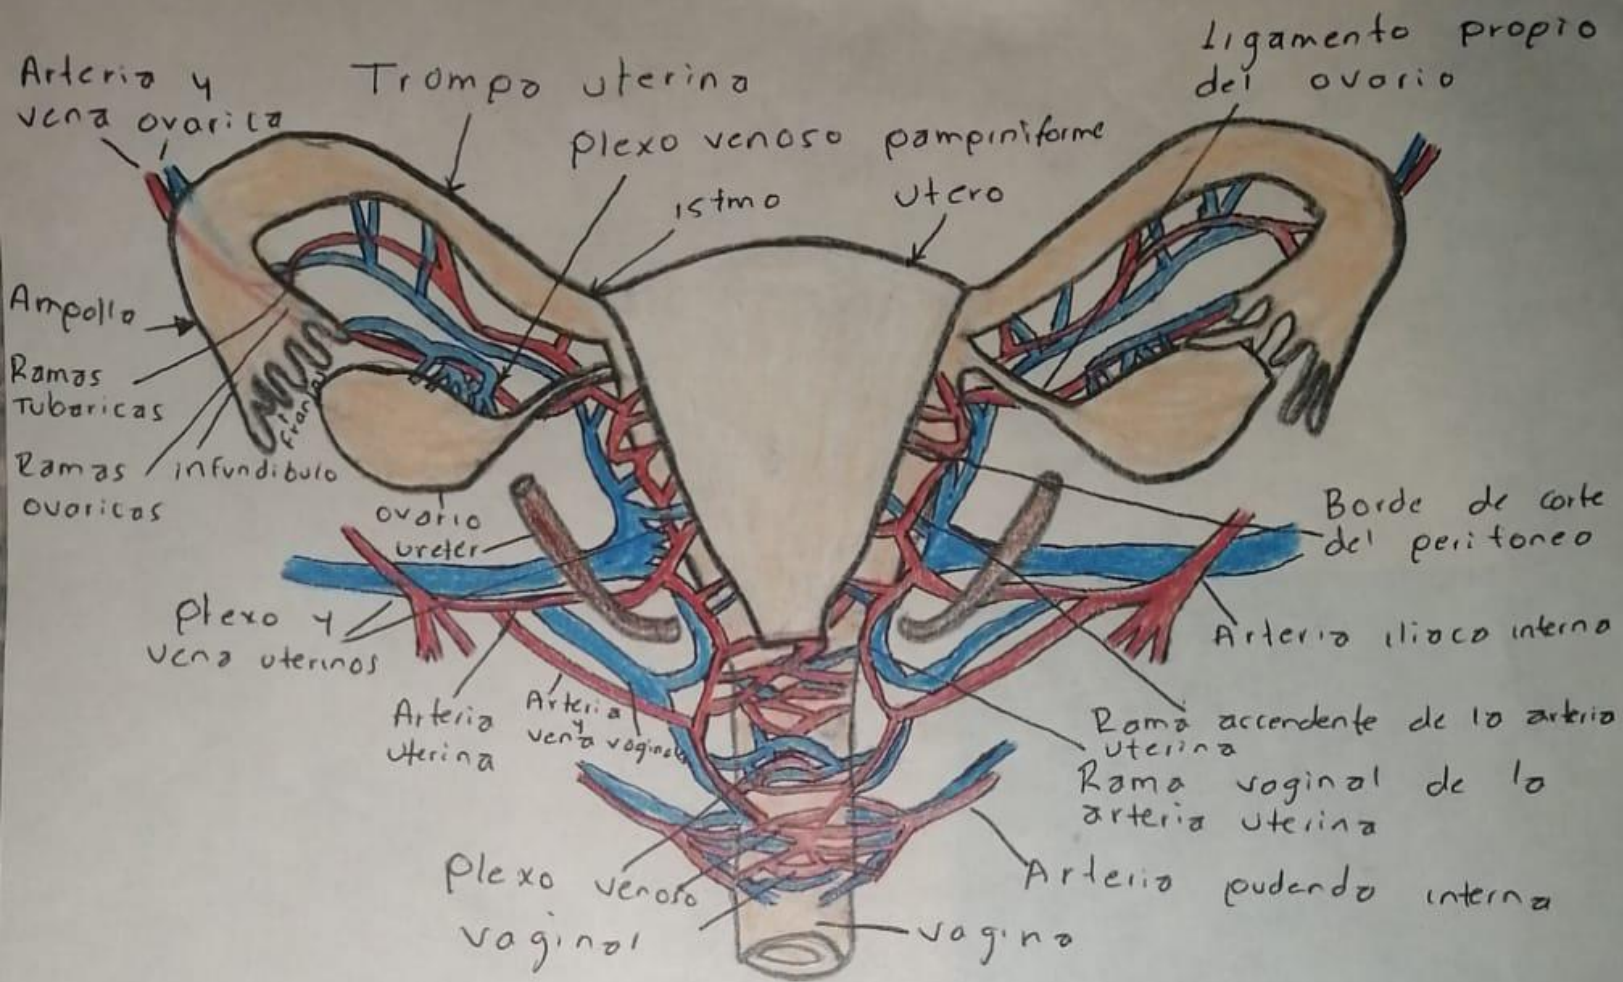 Arteria y
vena ovarica
Trompa uterina
plexo venoso pampiniforme
istmo
utero
Ligamento propio
del ovario
Ampolla
Ramas
Tubaricas
Ramas
ovaricas
infundibulo
ovario
ureter
Plexo y
vena uterinos
Arteria
uterina
Arteria
y
vena vaginal
Borde de corte
del peritoneo
Arteria iliaca interna
Rama accendente de la arteria
uterina
Rama vaginal de la
arteria uterina
Arteria pudenda interna
Plexo venoso
vaginal
vagina